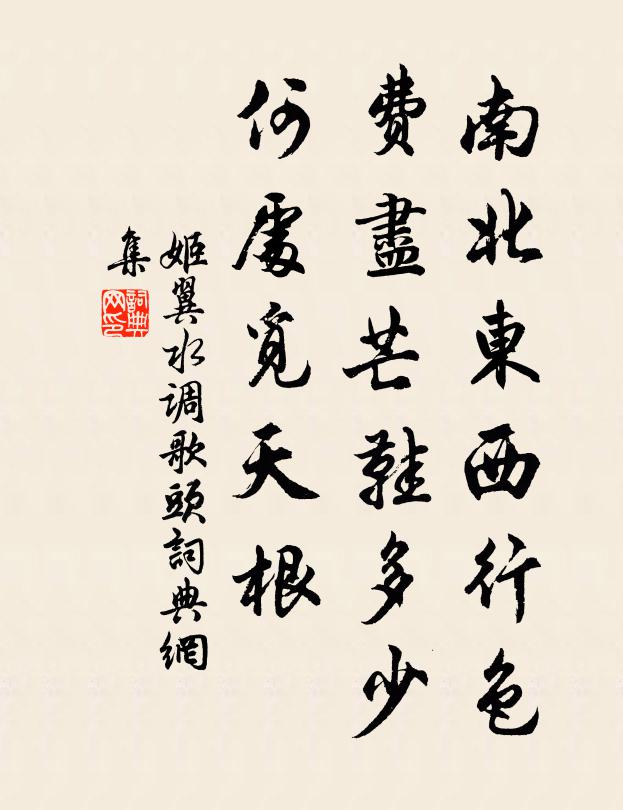 南北東西行色
費盡芒鞋多少
何處覓天根
姬翼水调歌頭詞典網
集
詞典
网印